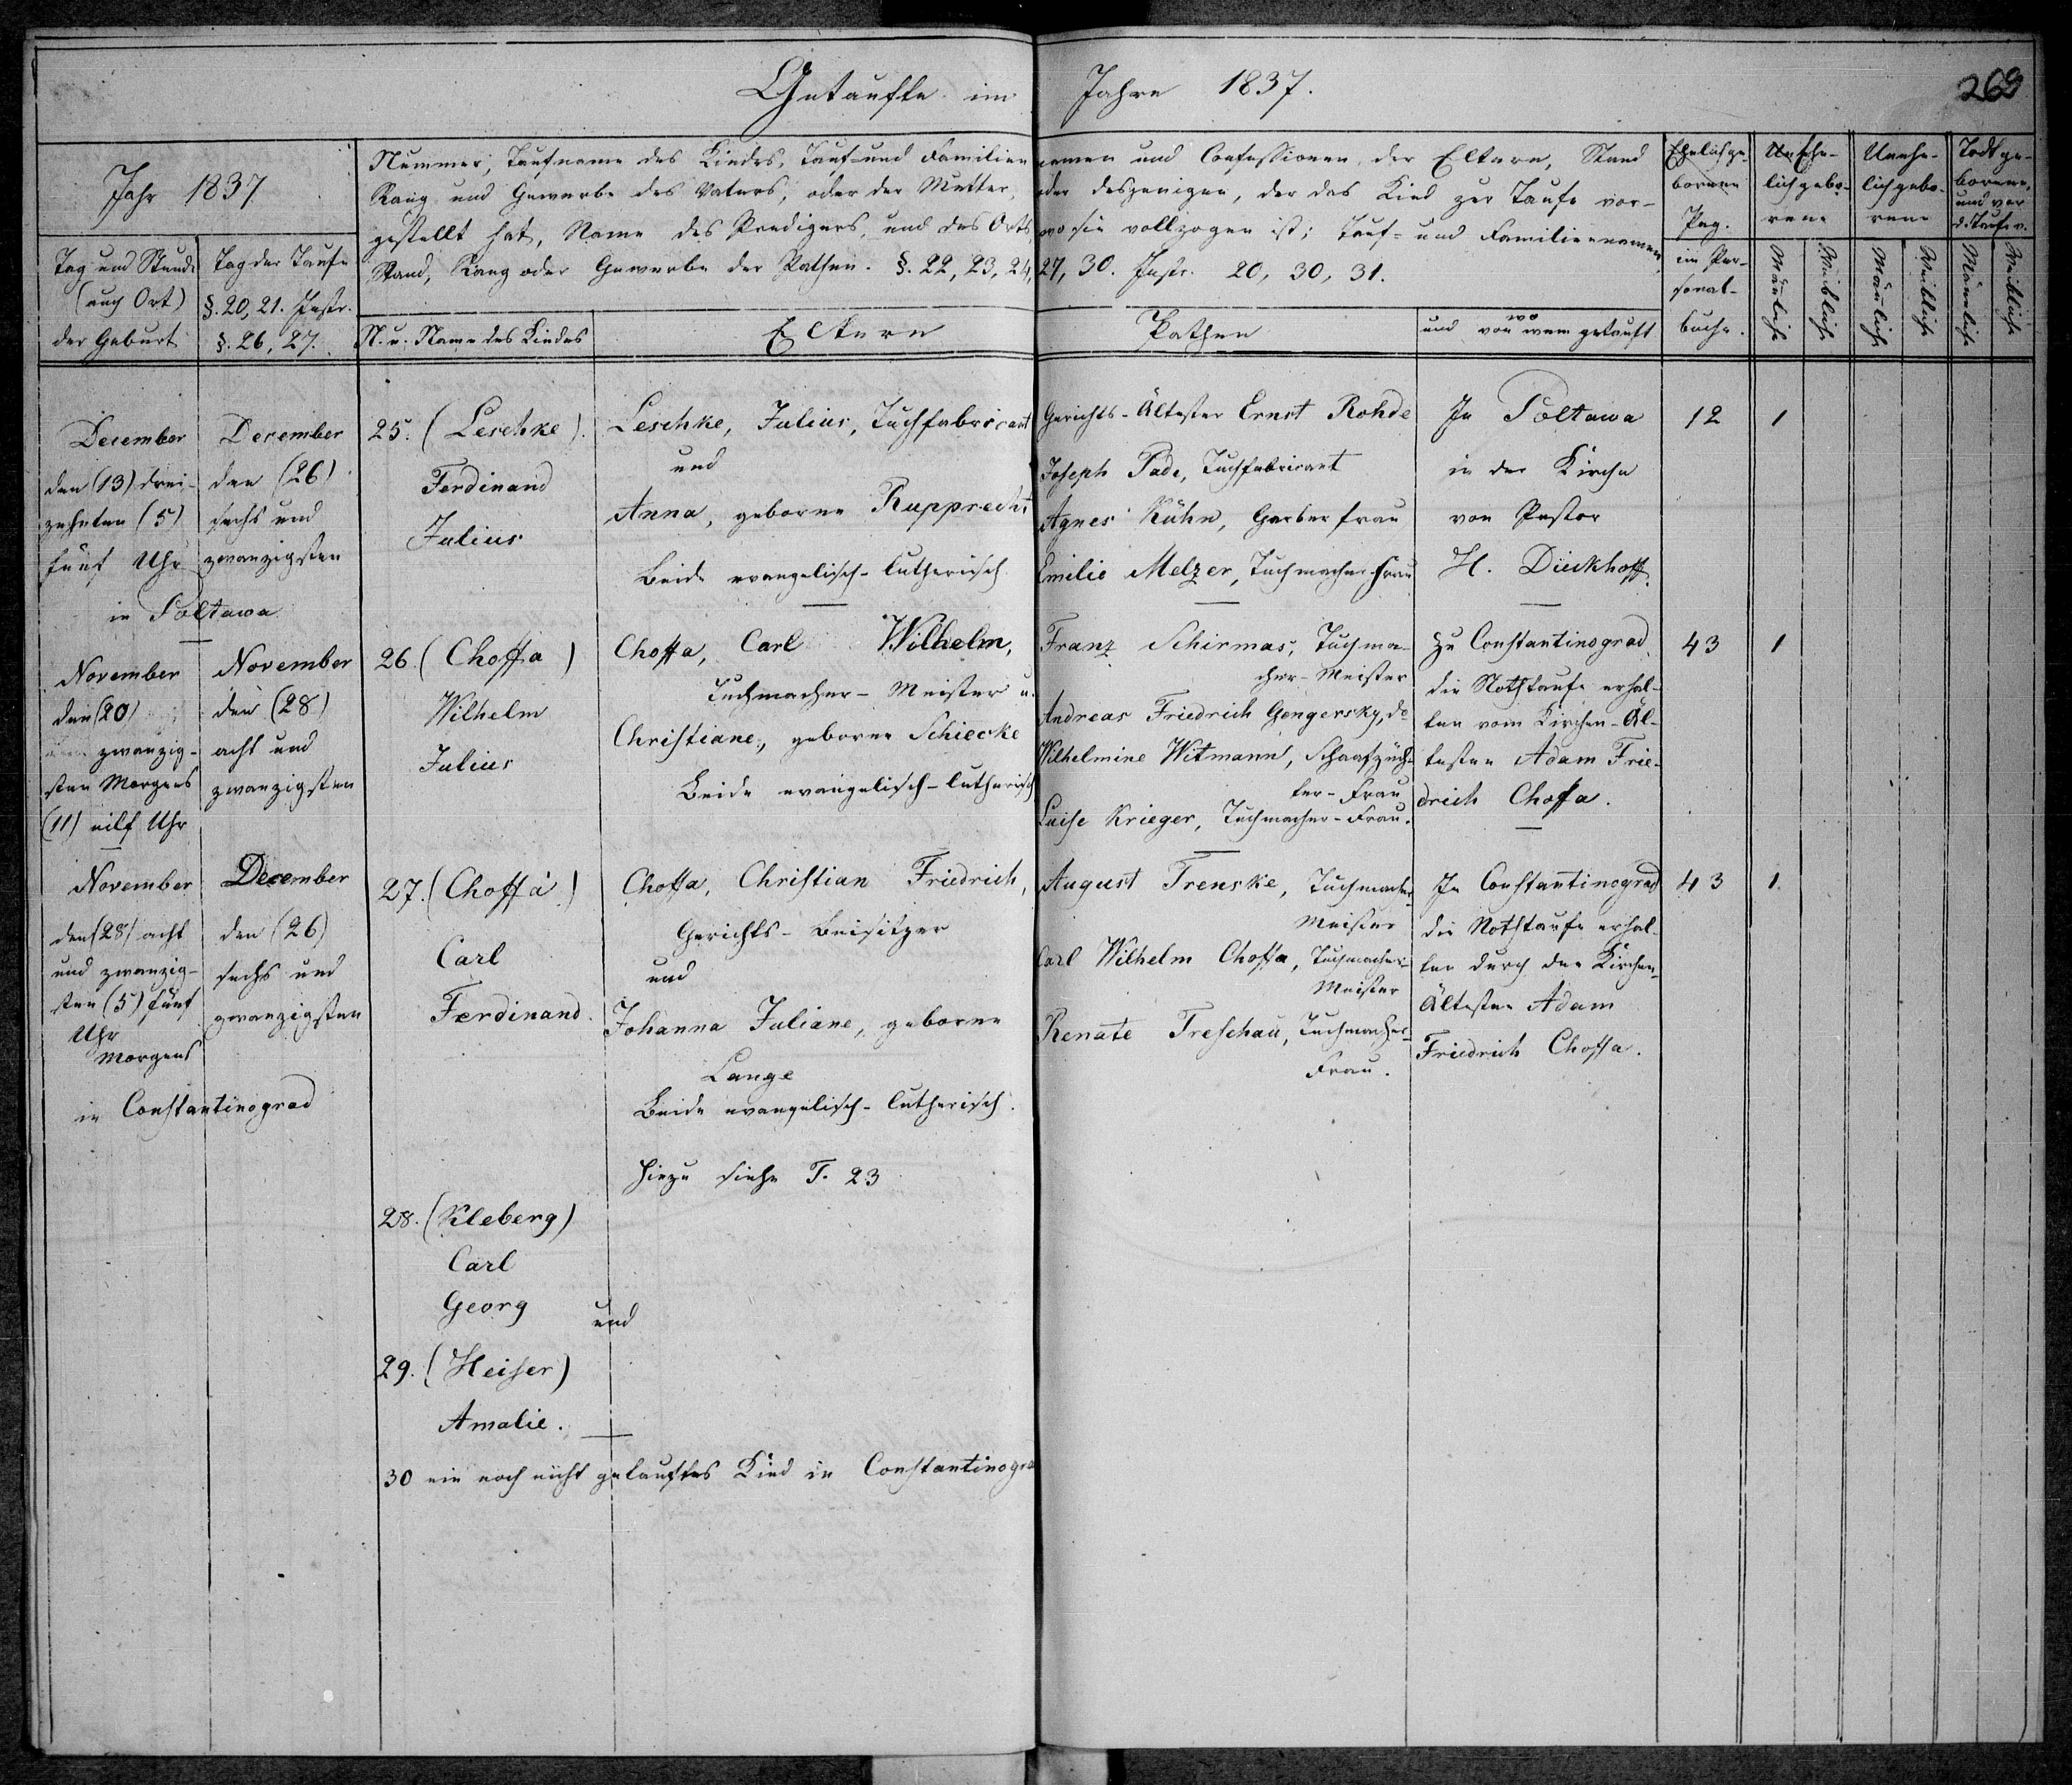 Getaufte im Jahre 1837.
269
Jahr 1837
Tag und Stunde
(auch Ort)
der Geburt
Tag der Taufe
§. 20, 21. Instr.
§. 26, 27.
Nummer, Taufname des Kindes, Tauf- und Familiennamen und Confessionen der Eltern, Stand
Rang und Gewerbe des Vaters, oder der Mutter, oder desjenigen, der das Kind zur Taufe vor-
gestellt hat, Name des Predigers, und des Orts, wo sie vollzogen ist; Tauf- und Familiennamen,
Stand, Rang oder Gewerbe der Pathen. §. 22, 23, 24, 27, 30. Instr. 20, 30, 31.
N. u. Name des Kindes
Eltern
Pathen
wo
und von wem getauft
Ehelich ge-
borene
Pag.
im Per-
sonal-
buche.
Unehe-
lich gebo-
rene
Männliche
Weibliche
Unehe-
lich gebo-
rene
Männliche
Weibliche
Todtge-
borene,
und vor
d. Taufe v.
Männliche
Weibliche
December
den (13) drei-
zehnten (5)
fünf Uhr
in Poltawa
December
den (26)
sechs und
zwanzigsten
25. (Leschke).
Ferdinand
Julius
Leschke, Julius, Tuchfabricant
und
Anna, geborne Rupprecht
Beide evangelisch-lutherisch.
Gerichts-Ältester Ernst Rohde
Joseph Pade, Tuchfabricant
Agnes Kühn, Gerberfrau
Emilie Melzer, Tuchmacher-Frau
In Poltawa
in der Kirche
von Pastor
H. Dieckhoff.
12
1
November
den (20)
zwanzig-
sten Morgens
(11) eilf Uhr
November
den (28)
acht und
zwanzigsten
26. (Choffa)
Wilhelm
Julius
Choffa, Carl Wilhelm,
Tuchmacher-Meister u.
Christiane, geborne Schiecke
Beide evangelisch-lutherisch
Franz Schirmas, Tuchma-
cher-Meister
Andreas Friedrich Gengersky, do
Wilhelmine Witmann, Schaafzüch-
ter-Frau
Luise Krieger, Tuchmacher-Frau.
Zu Constantinograd
die Nothtaufe erhal-
ten vom Kirchen-Äl-
testen Adam Frie-
drich Choffa.
43
1
November
den (28) acht
und zwanzig-
sten (5) fünf
Uhr
Morgens
in Constantinograd
December
den (26)
sechs und
zwanzigsten
27. (Choffa)
Carl
Ferdinand.
Choffa, Christian Friedrich,
Gerichts-Beisitzer
und
Johanna Juliane, geborne
Lange
Beide evangelisch-lutherisch.
August Trenske, Tuchmacher
Meister
Carl Wilhelm Choffa, Tuchmacher-
Meister
Renate Treschau, Tuchmacher-
Frau.
In Constantinograd
die Nothtaufe erhal-
ten durch den Kirchen-
Ältesten Adam
Friedrich Choffa.
43
1.
Hiezu siehe T. 23
28. (Kleberg)
Carl
Georg
und
29. (Heiser)
Amalie.
30 ein noch nicht getauftes Kind in Constantinogra